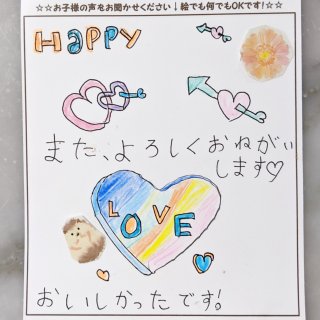 ☆☆お子様の声をお聞かせください↓絵でも何でもOKです!☆☆
HAPPY
また、よろしくおねがい
します♡
LOVE
おいしかったです!